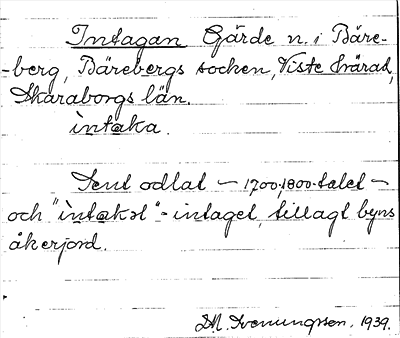 Intagan Gärde n. i Bäre-
-berg, Bärebergs socken, Viste härad,
Skaraborgs län.
ìntaka.
Sent odlat – 1700,1800-talet –
och "ìntakət" - intaget, tillagt byns
åkerjord.
D.M. Svenungsson. 1939.